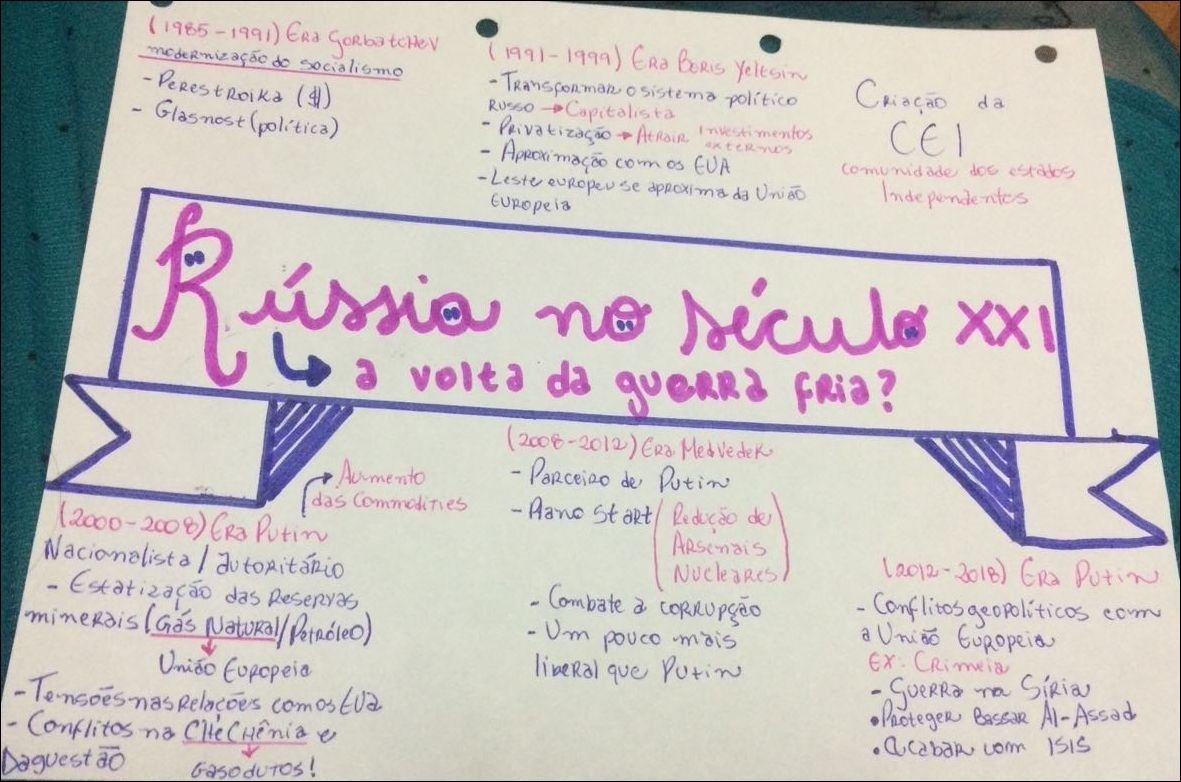 (1985-1991) Era Gorbatchev
modernização do socialismo
- Perestroika ($)
- Glasnost (política)
(1991-1999) Era Boris Yeltsin
- Transformar o sistema político
russo → Capitalista
- Privatização → Atrair investimentos
externos
- Aproximação com os EUA
- Leste europeu se aproxima da União
Europeia
Criação da
CEI
comunidade dos estados
Independentes
Rússia no século XXI
↳ a volta da guerra fria?
→ Aumento
das Commodities
(2000-2008) Era Putin
Nacionalista / Autoritário
- Estatização das reservas
minerais (Gás Natural/Petróleo)
União Europeia
- Tensões nas relações com os EUA
- Conflitos na Chechênia e
Daguestão
Gasodutos!
(2008-2012) Era Medvedek
- Parceiro de Putin
- Plano Start (Redução de
Arsenais
Nucleares)
- Combate a corrupção
- Um pouco mais
liberal que Putin
(2012-2018) Era Putin
- Conflitos geopolíticos com
a União Europeia
Ex: Crimeia
- Guerra na Síria
• Proteger Bassar Al-Assad
• Acabar com ISIS